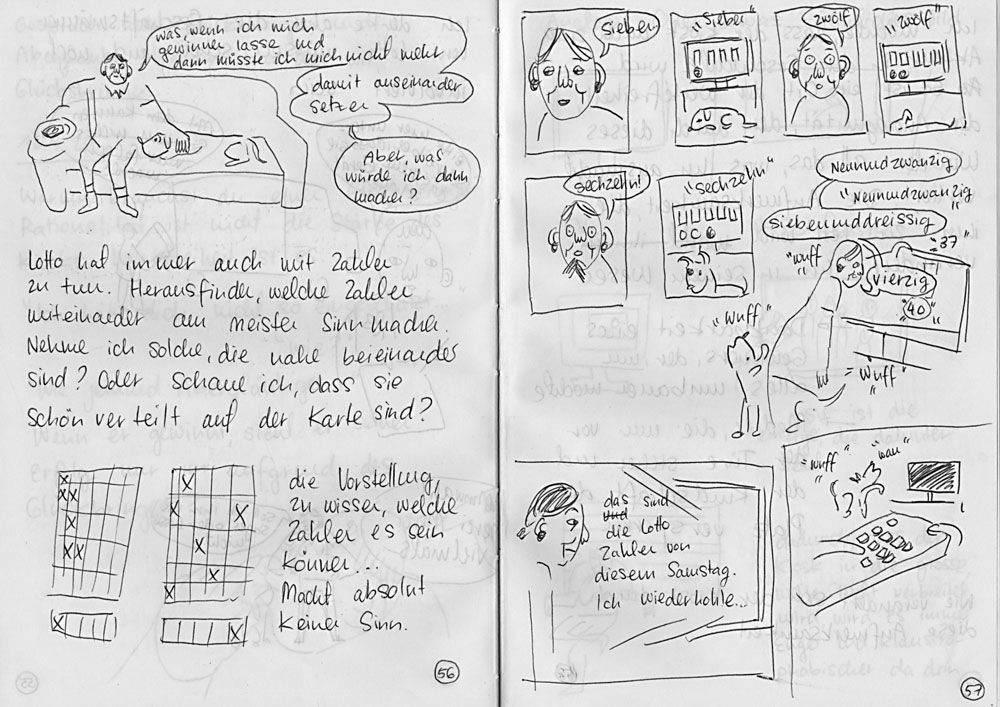 was, wenn ich mich
gewinnen lasse und
dann müsste ich mich nicht mehr
damit auseinander
setzen
Aber, was
würde ich dann
machen?
Lotto hat immer auch mit Zahlen
zu tun. Herausfinden, welche Zahlen
miteinander am meisten Sinn machen.
Nehme ich solche, die nahe beieinander
sind? Oder schaue ich, dass sie
schön verteilt auf der Karte sind?
die Vorstellung,
zu wissen, welche
Zahlen es sein
können...
Macht absolut
keinen Sinn.
56
Sieben
"Sieben"
zwölf
"zwölf"
sechzehn!
"Sechzehn"
Neunundzwanzig
"Neunundzwanzig"
siebenunddreissig
"37"
"wuff"
vierzig
"40"
"wuff"
"wuff"
das sind
die Lotto
Zahlen von
diesem Samstag.
Ich wiederhohle...
"wuff"
"wau"
57